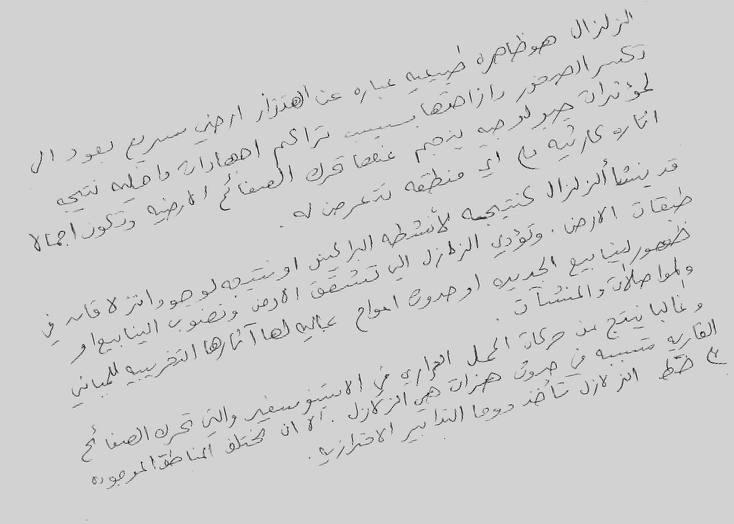 الزلزال هو ظاهره طبيعيه عباره عن اهتزاز ارضي سريع يعود الى
تكسر الصخور وازاحتها بسبب تراكم اجهادات داخليه نتيجه
لمؤثرات جيولوجيه ينجم عنها تحرك الصفائح الارضيه وتكون اجمالا
اثاره كارثيه على اي منطقه تتعرض له .
قد ينشأ الزلزال كنتيجه لأنشطه البراكين او نتيجه لوجود انزلاقات في
طبقات الارض . وتؤدي الزلازل الى تشقق الارض ونضوب الينابيع او
ظهور الينابيع الجديده او حدوث امواج عاليه لها آثارها التخريبيه للمباني
والمواصلات والمنشآت .
وغالبا ينتج عن حركات الحمل الحراري في الاستنوسفير والتي تحرك الصفائح
القاريه متسببه في حدوث هزات هي الزلازل . الا ان تختلف المناطق الموجوده
على خط الزلازل تأخذ دوما التدابير الاحترازيه .